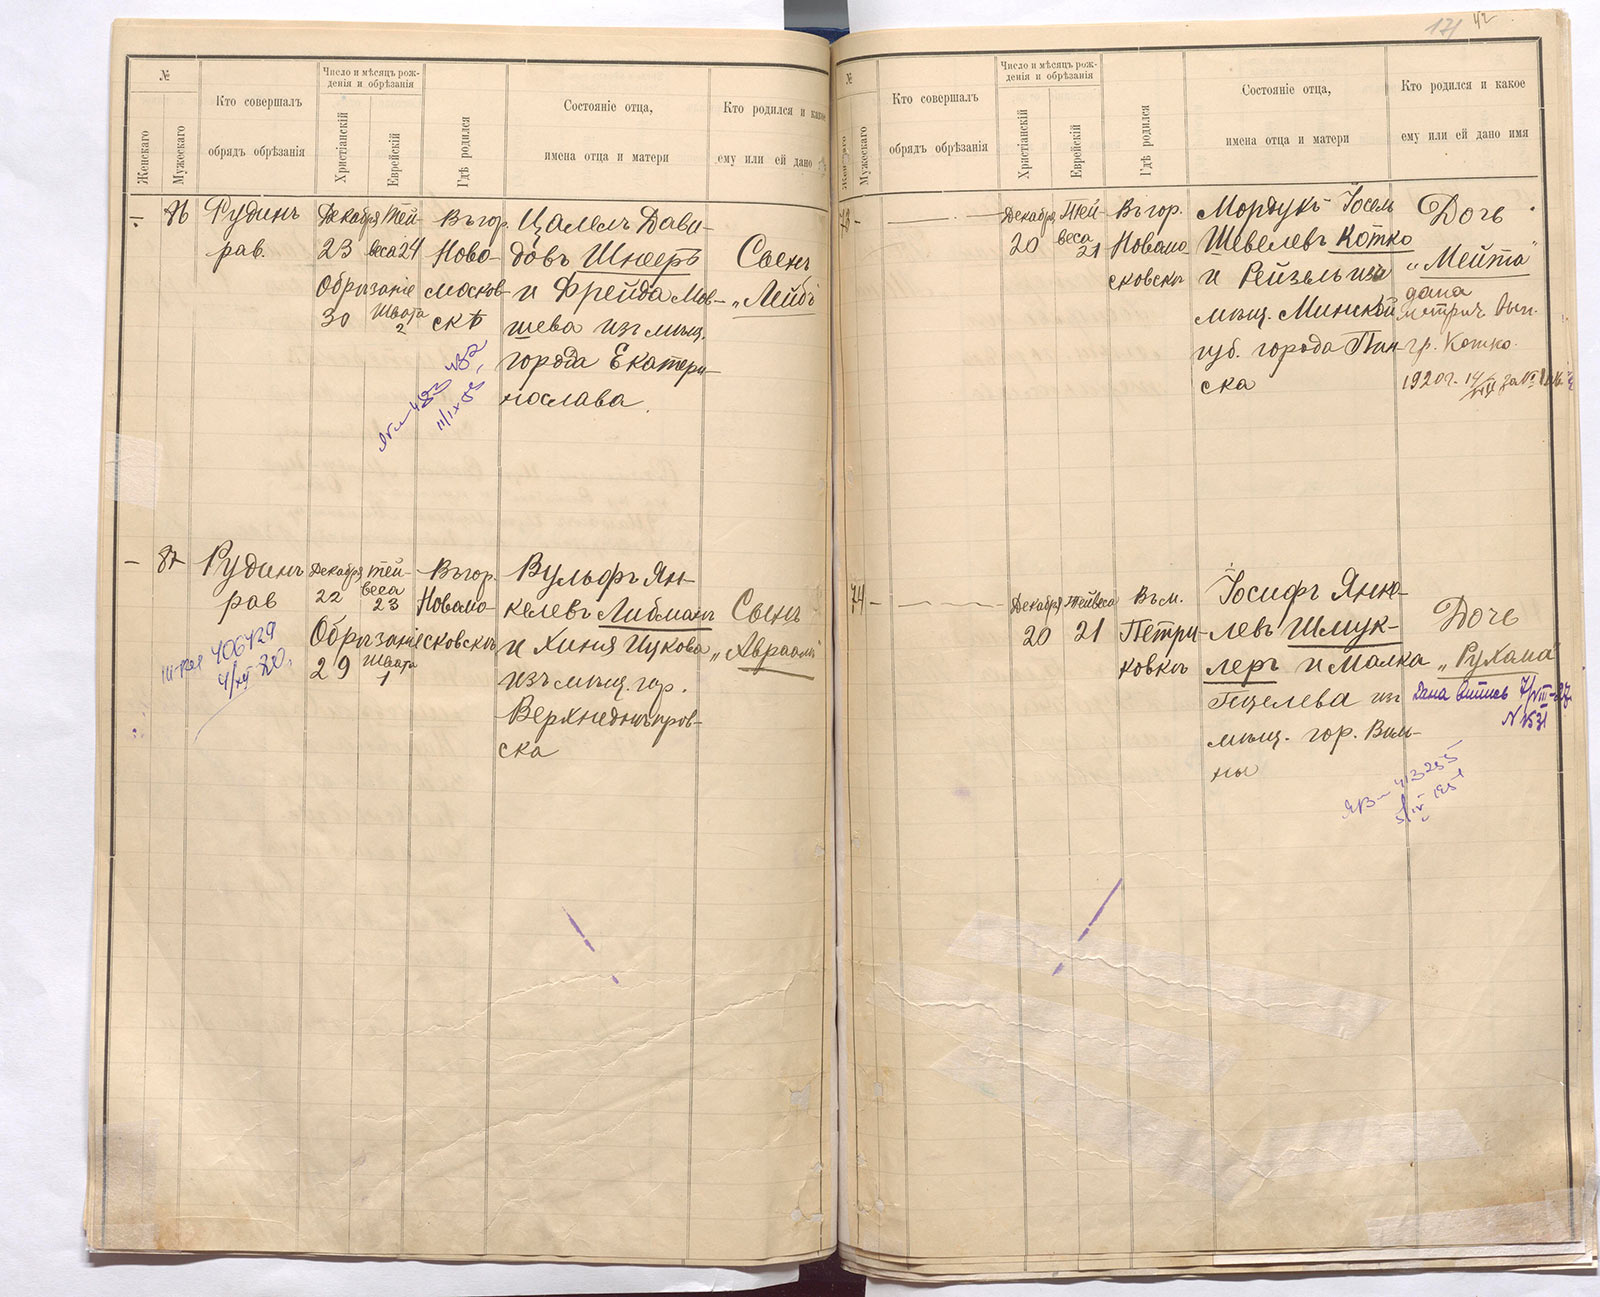 42
№
Женскаго
Мужескаго
Кто совершалъ
обрядъ обрѣзанія
Число и мѣсяцъ рож-
денія и обрѣзанія
Христіанскій
Еврейскій
Гдѣ родился
Состояніе отца,
имена отца и матери
Кто родился и какое
ему или ей дано
Рудинъ
рав.
Декабря
23
Обрѣзаніе
30
Тей-
веса 24
Швата
2
Въ гор.
Ново-
москов-
скѣ
Цалелъ Дави-
довъ Шнееръ
и Фрейда Мов-
шева изъ мѣщ.
города Екатери-
нослава.
Сынъ
„Лейбъ"
87
Рудинъ
рав
Декабря
22
Обрѣзаніе
29
Тей-
веса
23
Швата
1
Въ гор.
Новомо-
сковскѣ
Вульфъ Ян-
келевъ Либманъ
и Хиня Ицкова
изъ мѣщ. гор.
Верхнеднѣпров-
ска
Сынъ
„Авраамъ"
406429
№
Мужескаго
Кто совершалъ
обрядъ обрѣзанія
Число и мѣсяцъ рож-
денія и обрѣзанія
Христіанскій
Еврейскій
Гдѣ родился
Состояніе отца,
имена отца и матери
Кто родился и какое
ему или ей дано имя
73
Декабря
20
Тей-
веса
21
Въ гор.
Новомо-
сковскѣ
Мордухъ-Іосель
Шевелевъ Котко
и Рейзель изъ
мѣщ. Минской
губ. города Пин-
ска
Дочь
„Мейта"
дана
метрич вып.
гр. Котко.
1920 г.
74
Декабря
20
Тейвеса
21
Въ м.
Петри-
ковкѣ
Іосифъ Янке-
левъ Шмук-
леръ и Малка
изъ
мѣщ. гор. Виль-
ны
Дочь
„Рухама"
Дана випись
413255